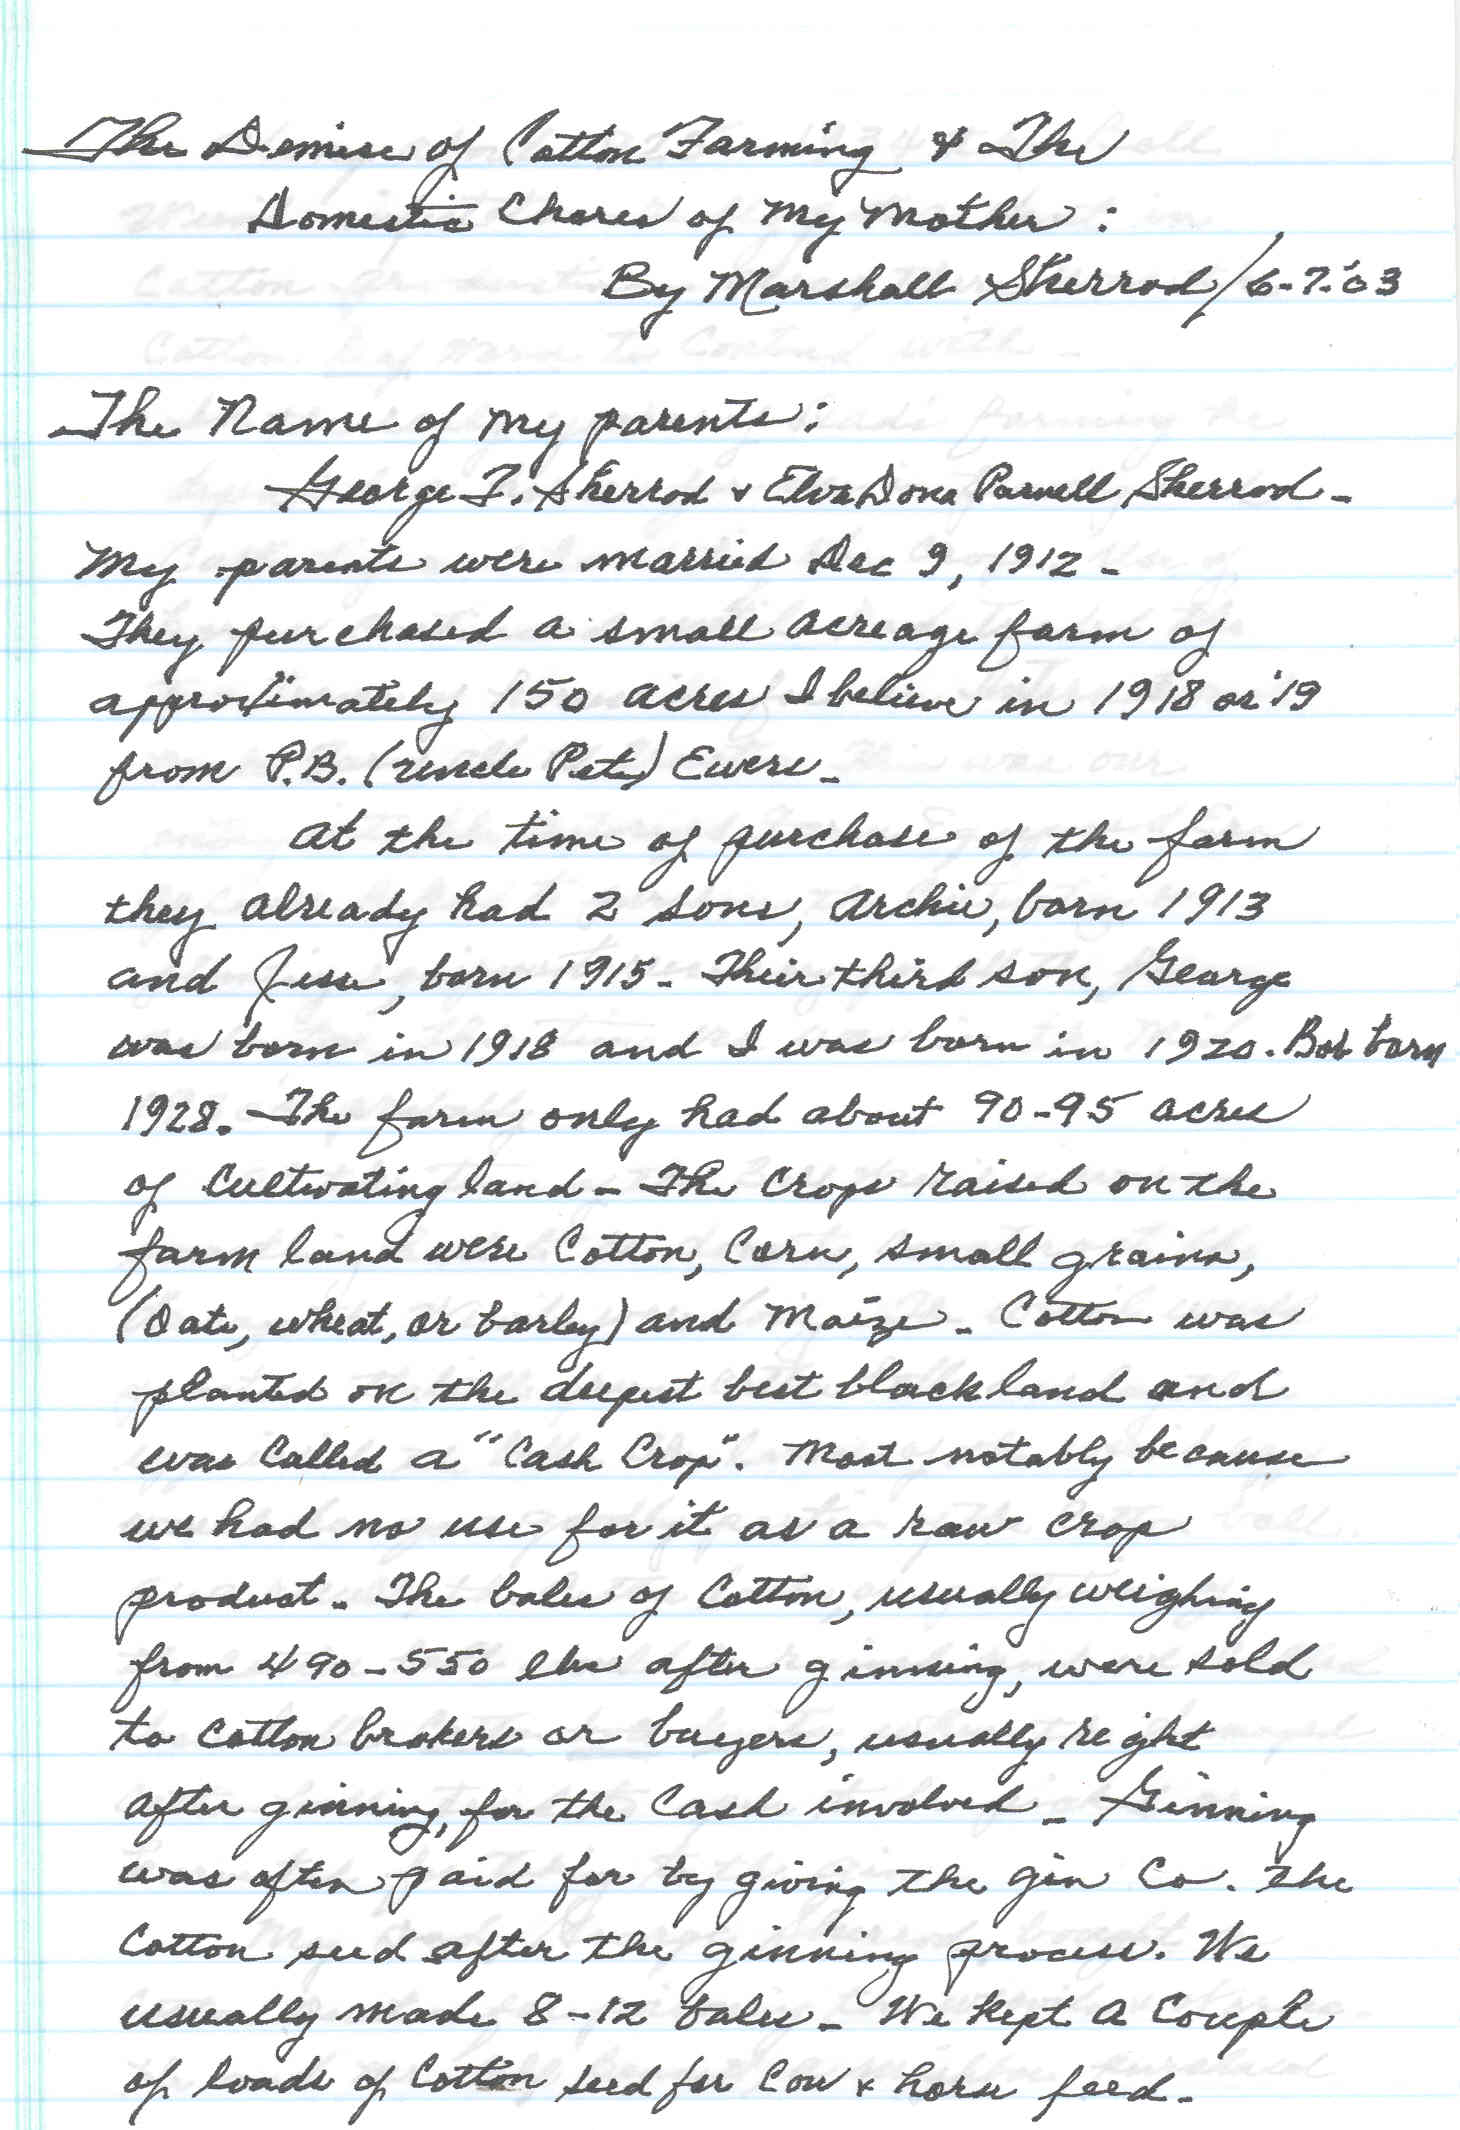 The Demise of Cotton Farming & The
Domestic Chores of My Mother:
By Marshall Sherrod/6-7-'03
The Name of My parents:
George F. Sherrod & Elva Dona Parnell Sherrod -
My parents were married Dec 9, 1912 -
They purchased a small acreage farm of
approximately 150 acres I believe in 1918 or '19
from P.B. (uncle Pete) Ewers -
At the time of purchase of the farm
they already had 2 sons, Archie, born 1913
and Jesse, born 1915 - Their third son, George
was born in 1918 and I was born in 1920. Bob born
1928. The farm only had about 90-95 acres
of Cultivating land - The Crops raised on the
farm land were Cotton, Corn, small grains,
(Oats, wheat, or barley) and Maize - Cotton was
planted on the deepest best blackland and
was Called a "Cash Crop". Most notably because
we had no use for it as a raw crop
product - The bales of Cotton, usually weighing
from 490-550 lbs after ginning, were sold
to Cotton brokers or buyers, usually right
after ginning, for the Cash involved - Ginning
was often paid for by giving the gin Co. the
Cotton seed after the ginning process. We
usually made 8-12 bales - We kept a Couple
of loads of Cotton seed for Cow & horse feed -